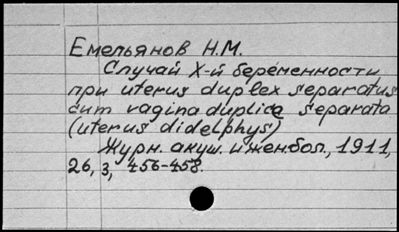 Емельянов Н.М.
Случай X-й беременности
при uterus duplex separatus
cum vagina duplice separata
(uterus didelphys)
Журн. акуш. и жен.бол., 1911,
26, 3, 456-458.